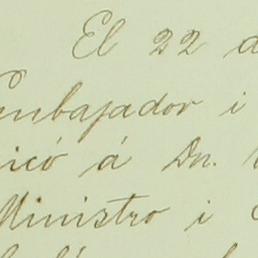 El 22 d
Embajador i
icó á Dn.
Ministro i